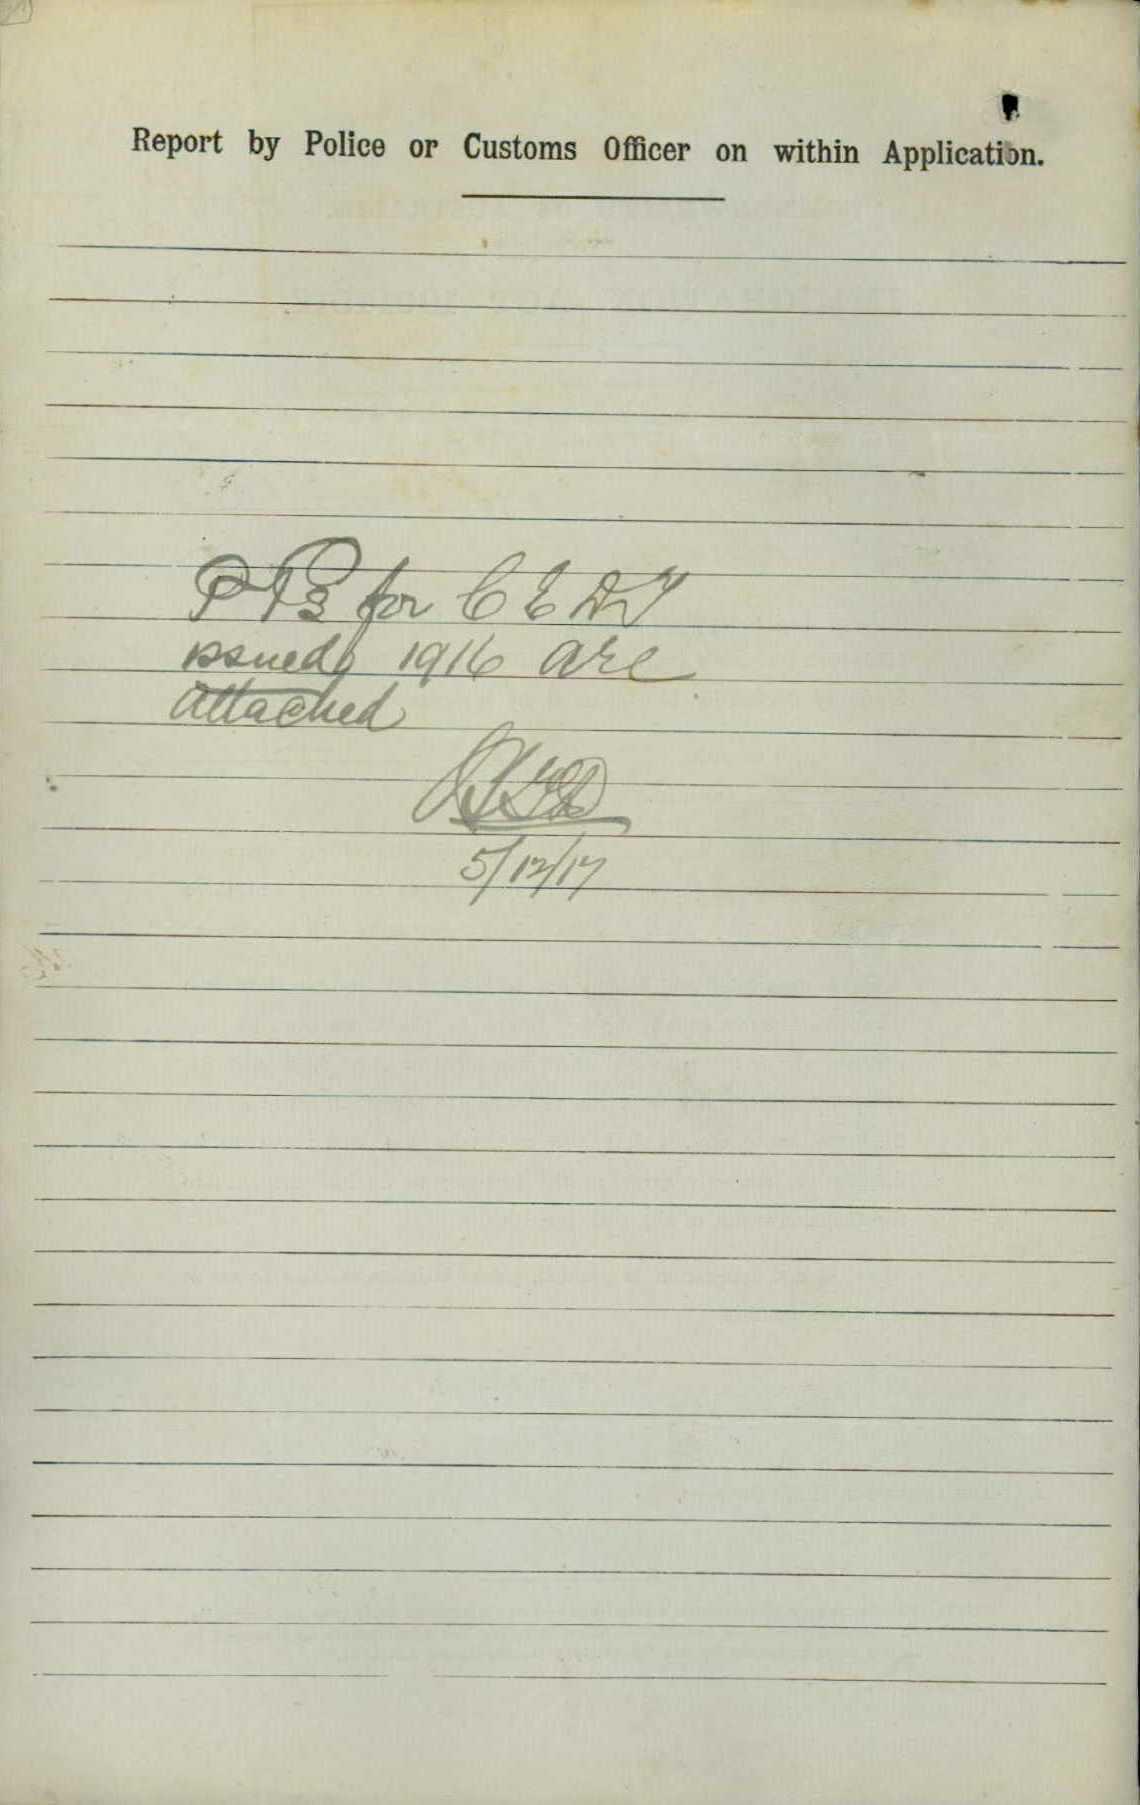 Report by Police or Customs Officer on within Application.
for C E D T
issued 1916 are
attached
5/12/17